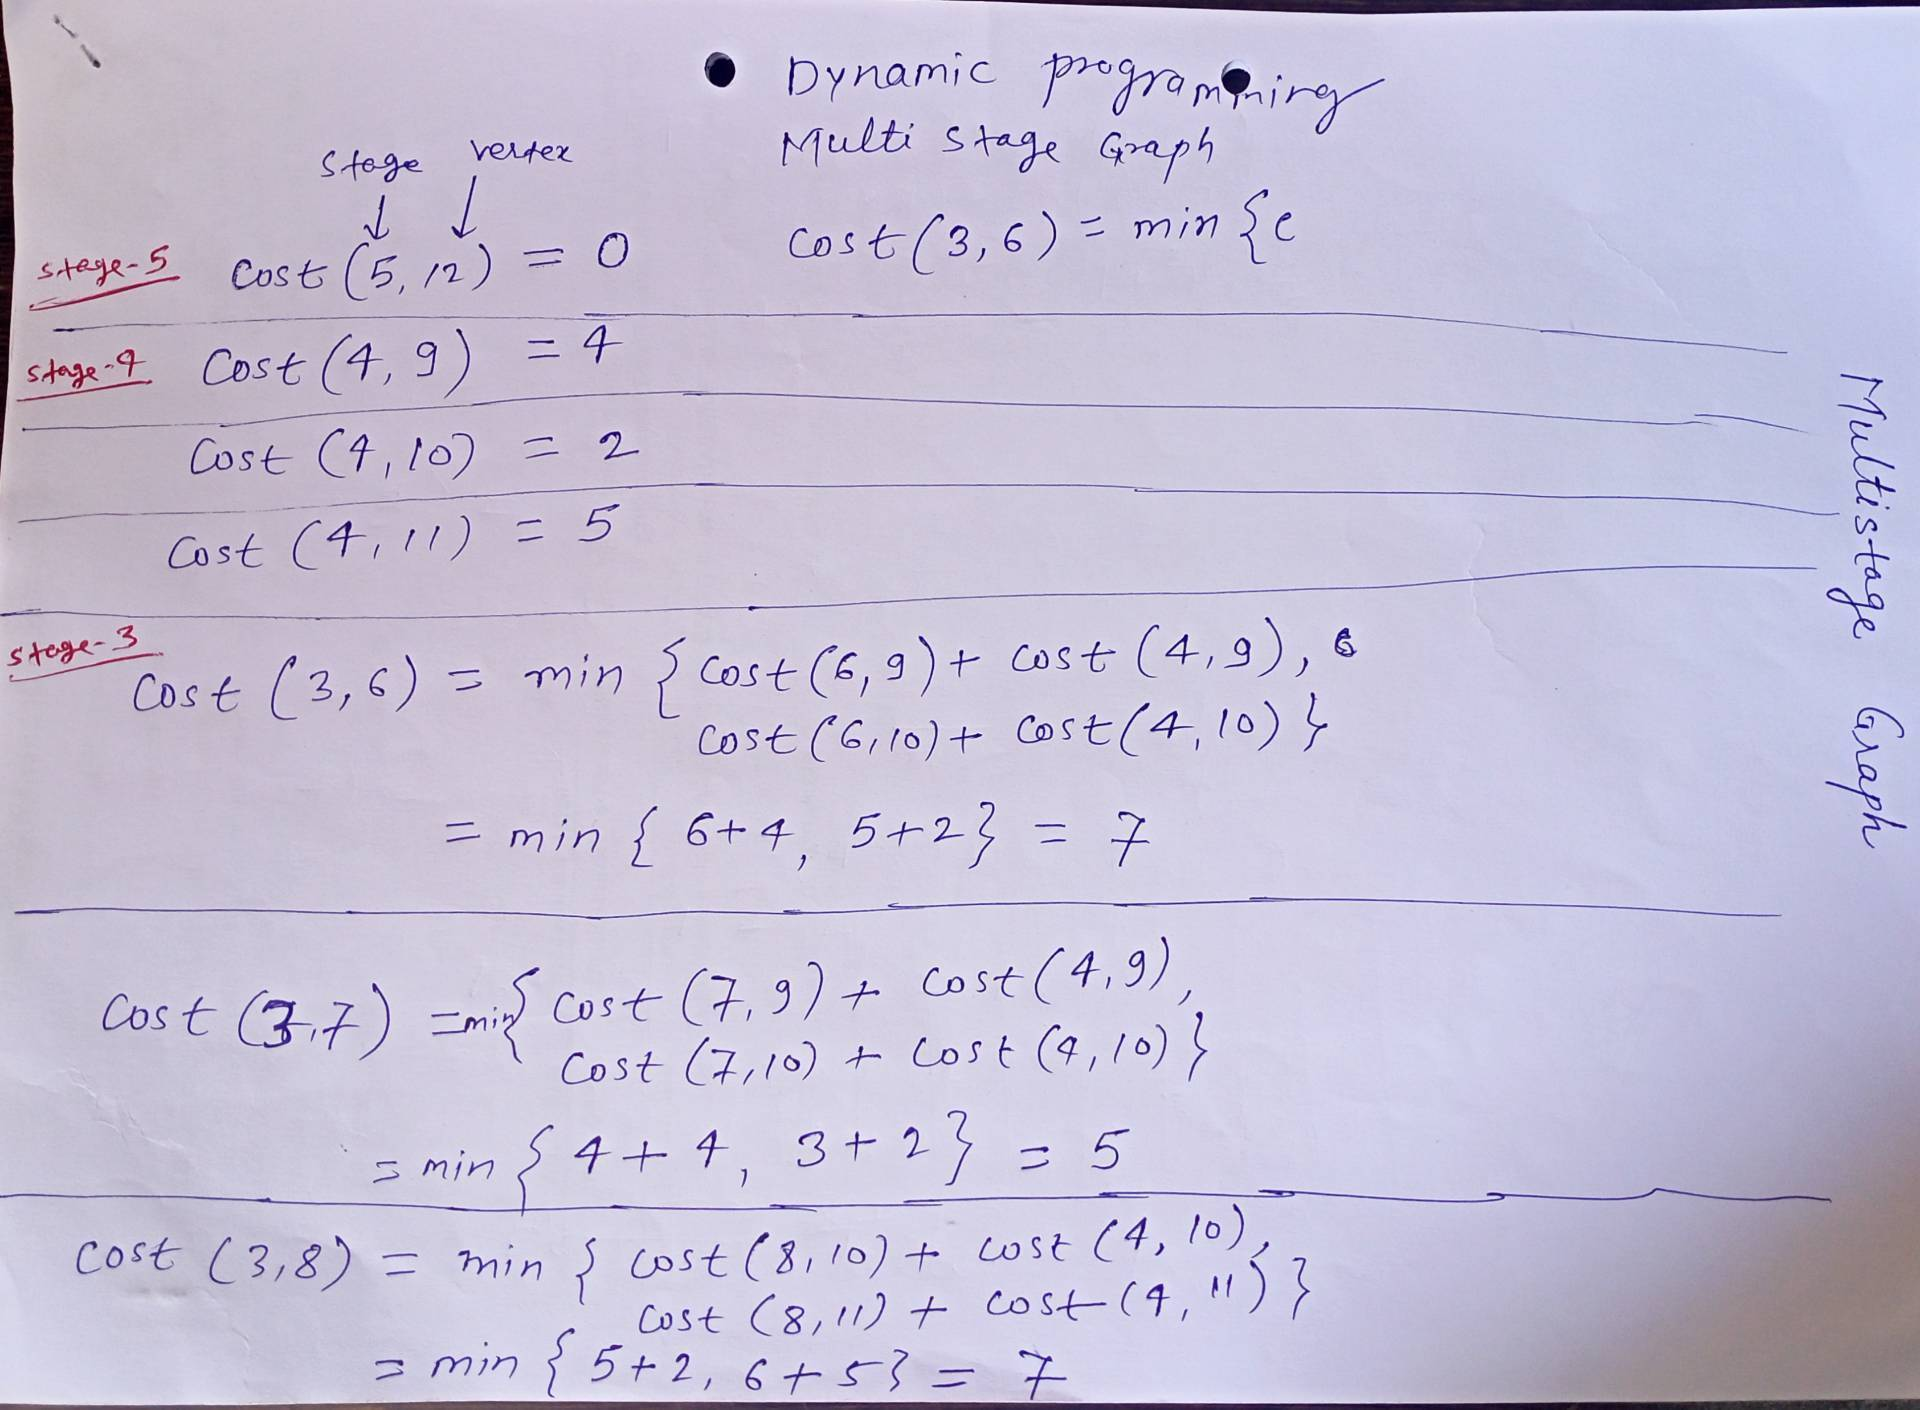 Dynamic programming
Multi stage Graph
stage vertex
cost(3,6) = min {c
stage-5 cost (5, 12) = 0
stage-4 cost (4, 9) = 4
cost (4, 10) = 2
cost (4, 11) = 5
stage-3
cost (3, 6) = min { cost (6, 9) + cost (4, 9), 6
cost (6, 10) + cost (4, 10) }
= min { 6+4, 5+2} = 7
cost (3,7) =min{ cost (7,9) + cost (4,9),
cost (7,10) + cost (4, 10) }
= min { 4 + 4, 3 + 2 } = 5
cost (3,8) = min { cost (8, 10) + cost (4, 10),
cost (8, 11) + cost (4, 11) }
= min { 5+2, 6+5} = 7
Multistage Graph